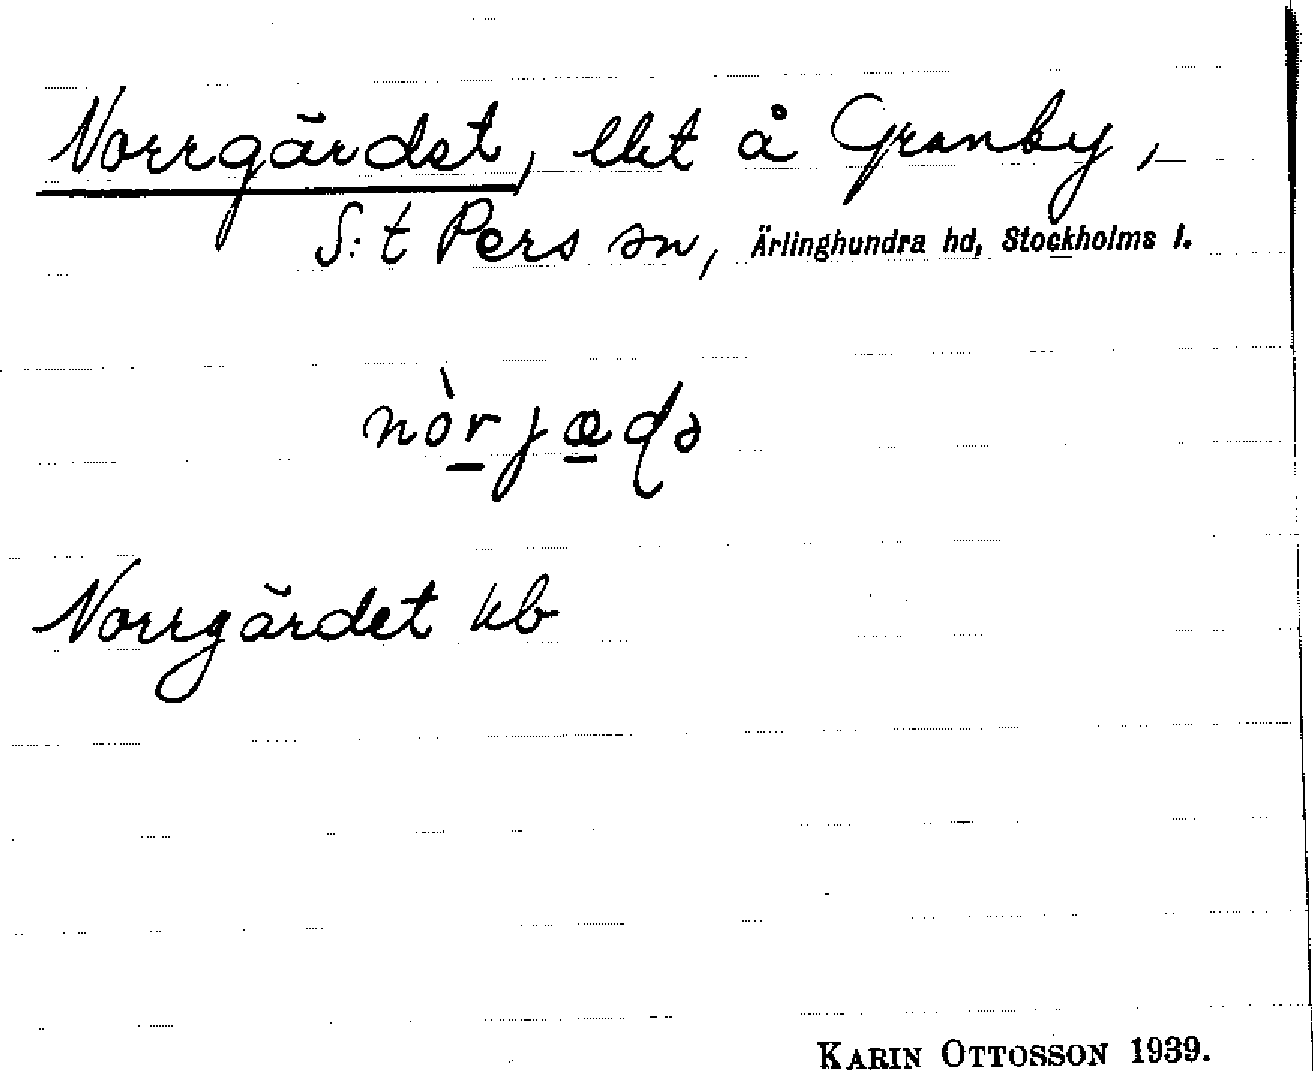 Norrgärdet, lht å Granby,
S:t Pers sn, Ärlinghundra hd, Stockholms l.
nòrjæḍə
Norrgärdet kb
KARIN OTTOSSON 1939.